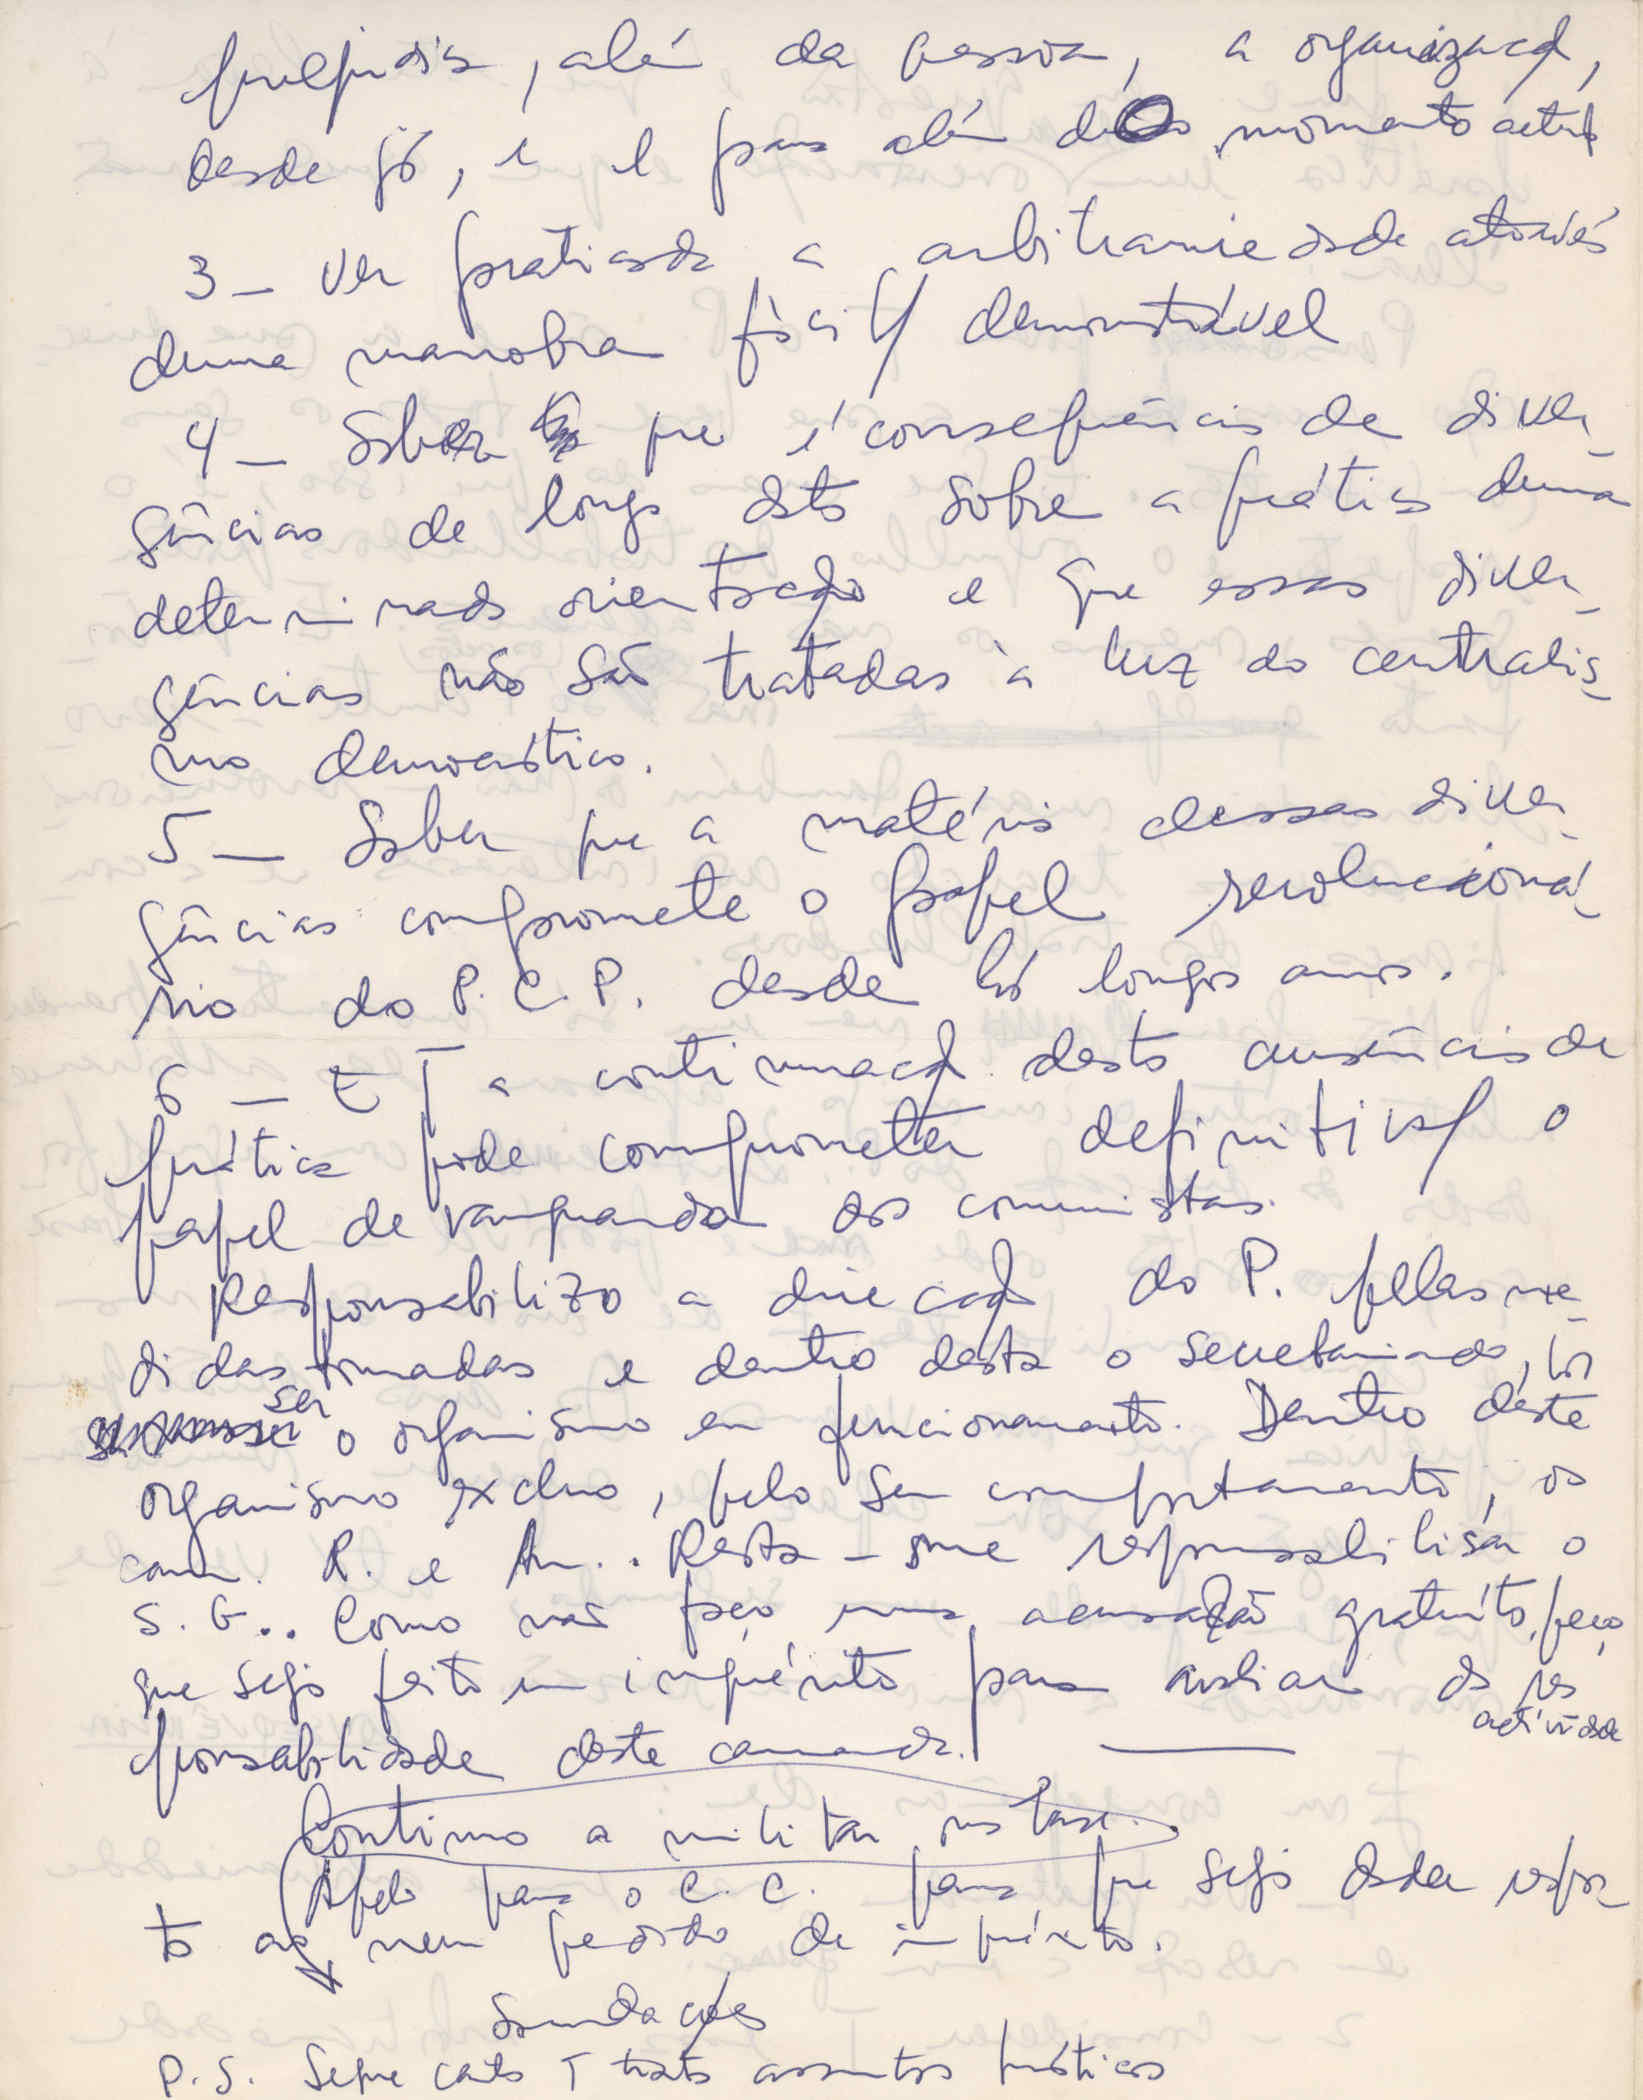 prejudica, alén da pessoa, a organizaçƒ,
desde já, e e para além do momento actual
3 — Ver praticada a arbitrariedade através
duma manobra fàcilƒ demonstrável
4 — Saber que é consequência de diver-
gências de longa data sobre a prática duma
determinada orientação e que essas diver-
gências não são tratadas à luz do centralis-
mo democrático.
5 — Saber que a matéria dessas diver-
gências compromete o papel revolucioná-
rio do P.C.P. desde há longos anos.
6 — E q a continuaçƒ desta ausência de
prática pode comprometer definitivaƒ o
papel de vanguarda dos comunistas.
Responsabilizo a direcçƒ do P. pelas me-
didas tomadas e dentro desta o secretariado, por
ser o organismo em funcionamento. Dentro deste
organismo excluo, pelo seu comportamento, os
cam. R. e Am.. Resta-me responsabilisar o
S.G.. Como não faço uma acusação gratuíta, peço
que seja feito um inquérito para avaliar da res
actividade
ponsabilidade deste camarada. ———
Continuo a militar
Apelo para o C.C. para que seja dada respos-
ta ao meu pedido de inquérito.
Saudações
P.S. Segue carta T trata assuntos práticos